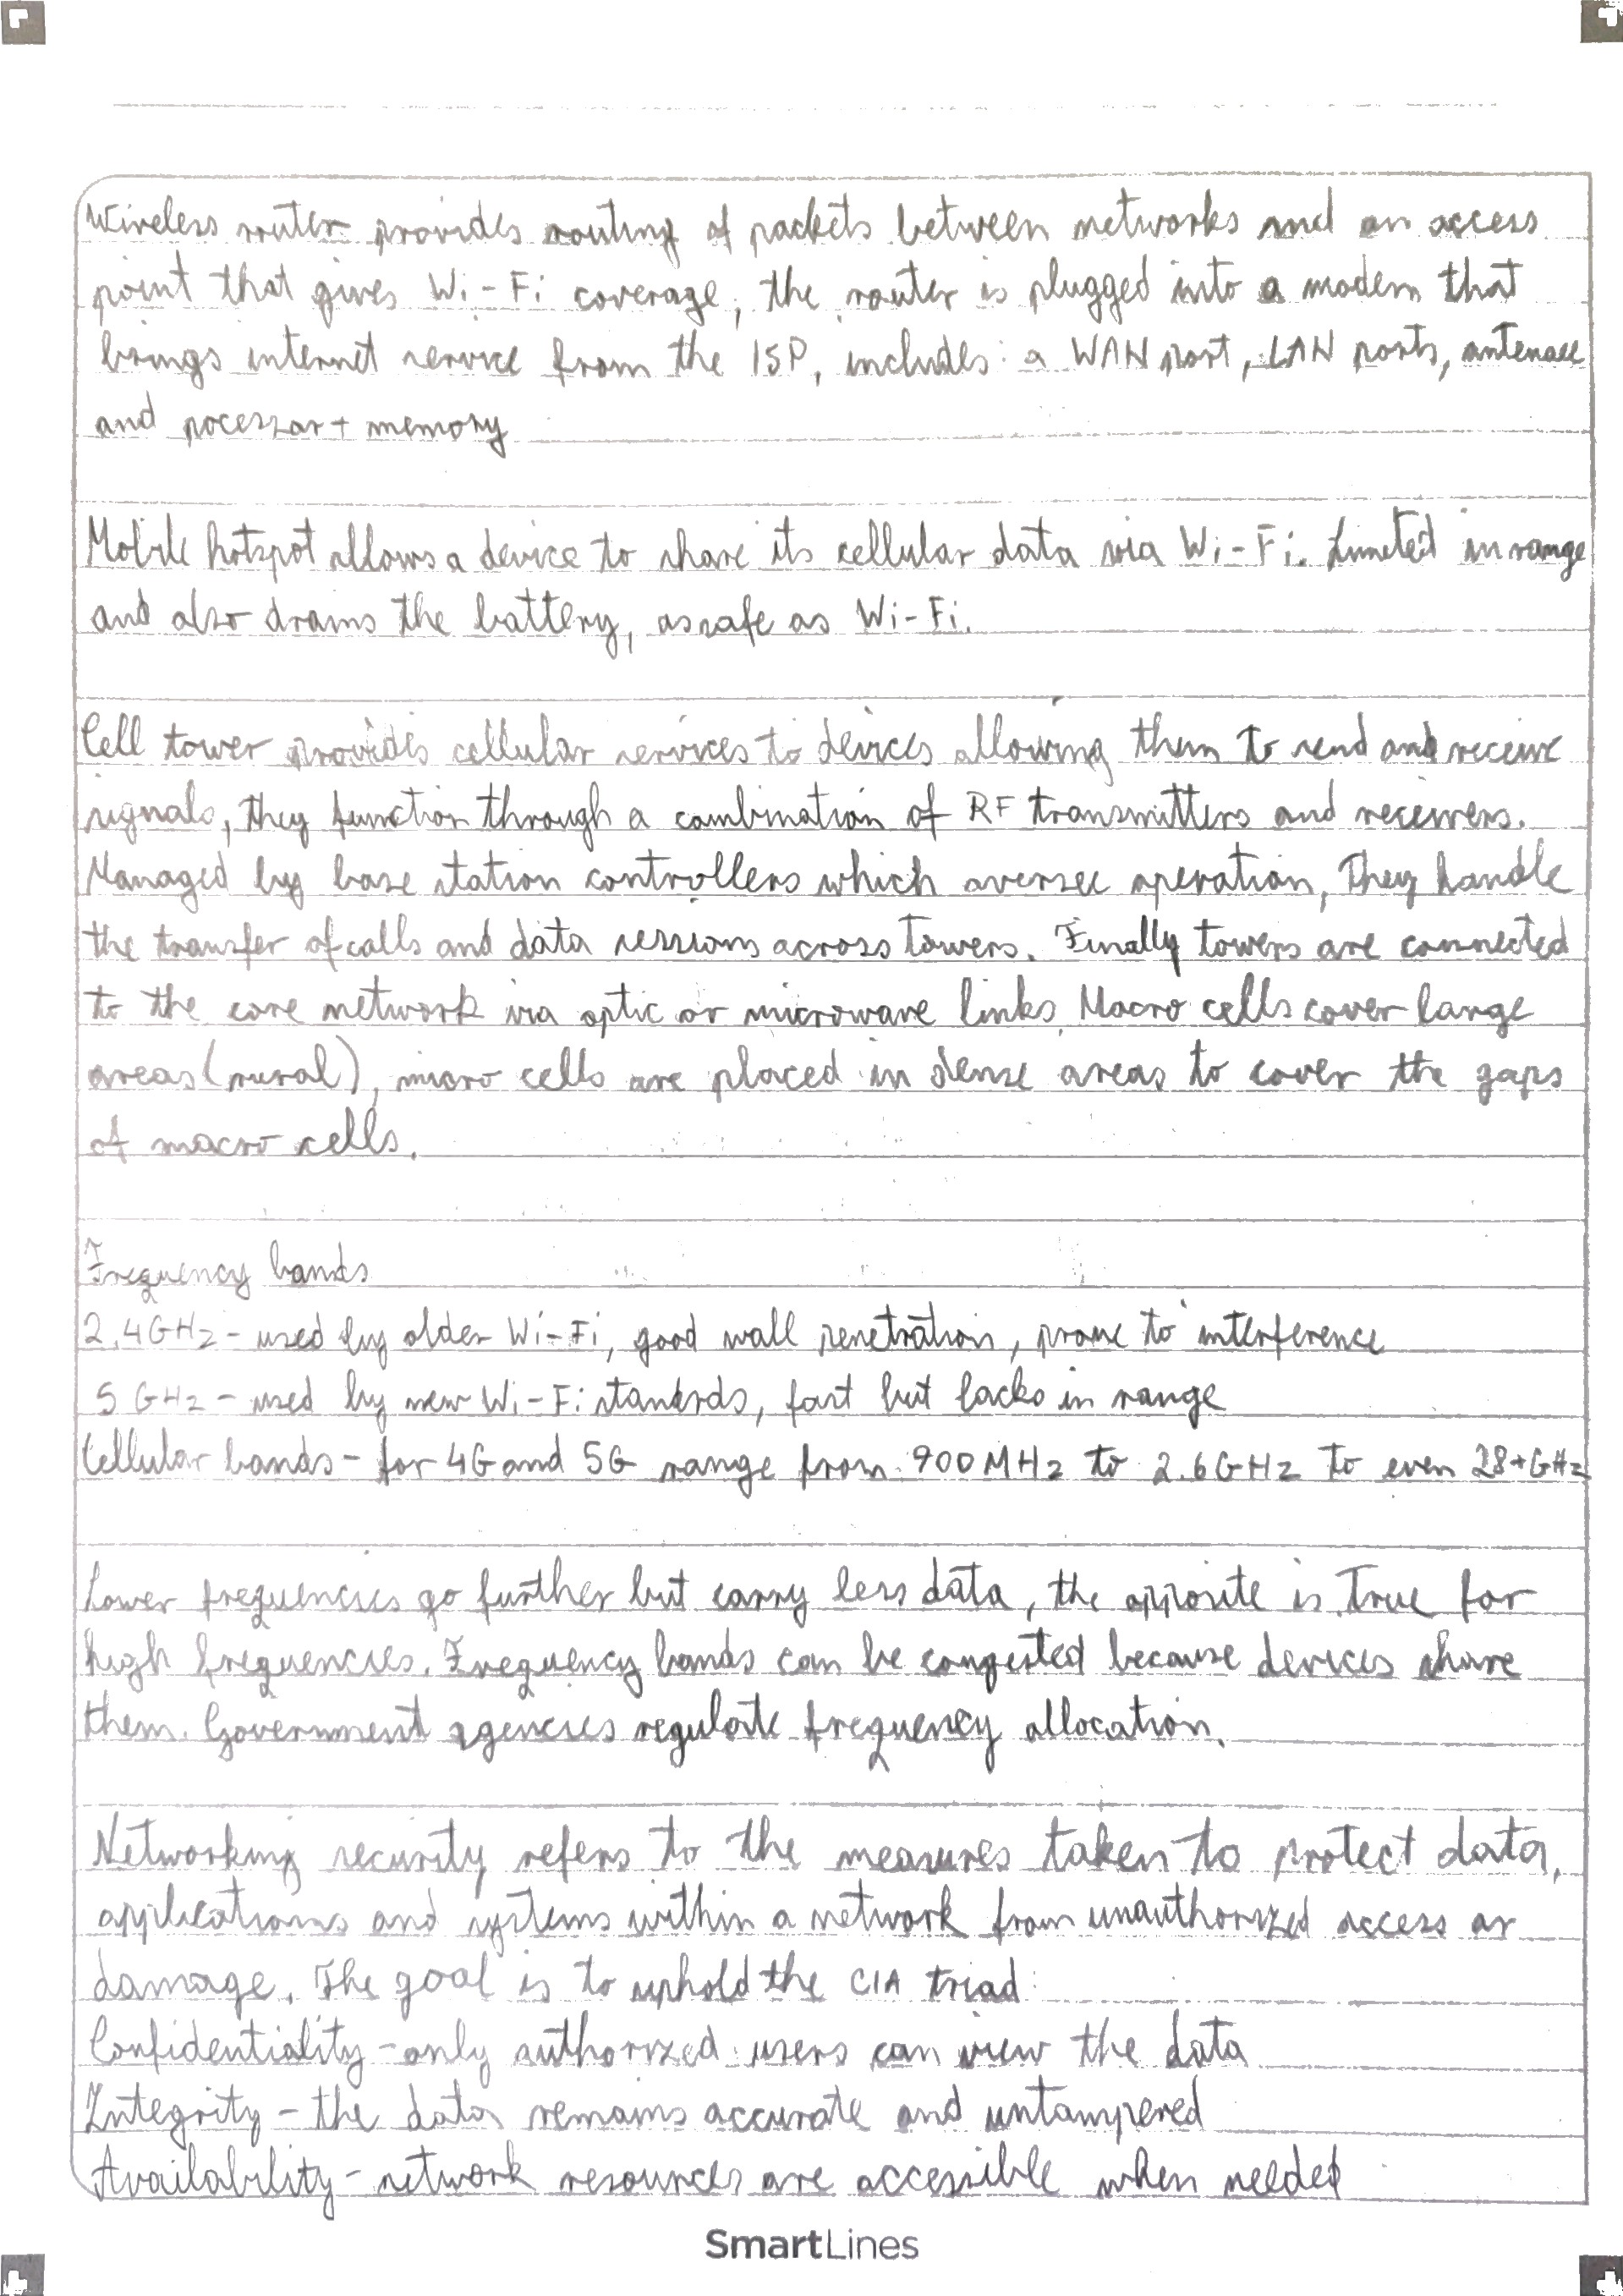 Wireless router provides routing of packets between networks and an access
point that gives Wi-Fi coverage, the router is plugged into a modem that
brings internet service from the ISP, includes: a WAN port, LAN ports, antenae
and pocessor + memory
Mobile hotspot allows a device to share its cellular data via Wi-Fi. Limeted in range
and also drains the battery, as safe as Wi-Fi.
Cell tower provides cellular services to devices allowing them to send and receive
signals, they function through a combination of RF transmitters and receivers.
Managed by base station controllers which oversee operation, They handle
the transfer of calls and data sessions across towers. Finally towers are connected
to the core network via optic or microwave links. Macro cells cover large
areas (rural), micro cells are placed in dense areas to cover the gaps
of macro cells.
Frequency bands
2.4GHz - used by older Wi-Fi, good wall penetration, prone to interference
5 GHz - used by new Wi-Fi standards, fast but lacks in range
Cellular bands - for 4G and 5G range from 900MHz to 2.6GHz to even 28+GHz
Lower frequencies go further but carry less data, the opposite is true for
high frequencies. Frequency bands can be congested because devices share
them. Government agencies regulate frequency allocation.
Networking security refers to the measures taken to protect data,
applications and systems within a network from unauthorized access or
damage. The goal is to uphold the CIA triad:
Confidentiality - only authorized users can view the data
Integrity - the data remains accurate and untampered
Availability - network resources are accessible when needed
SmartLines